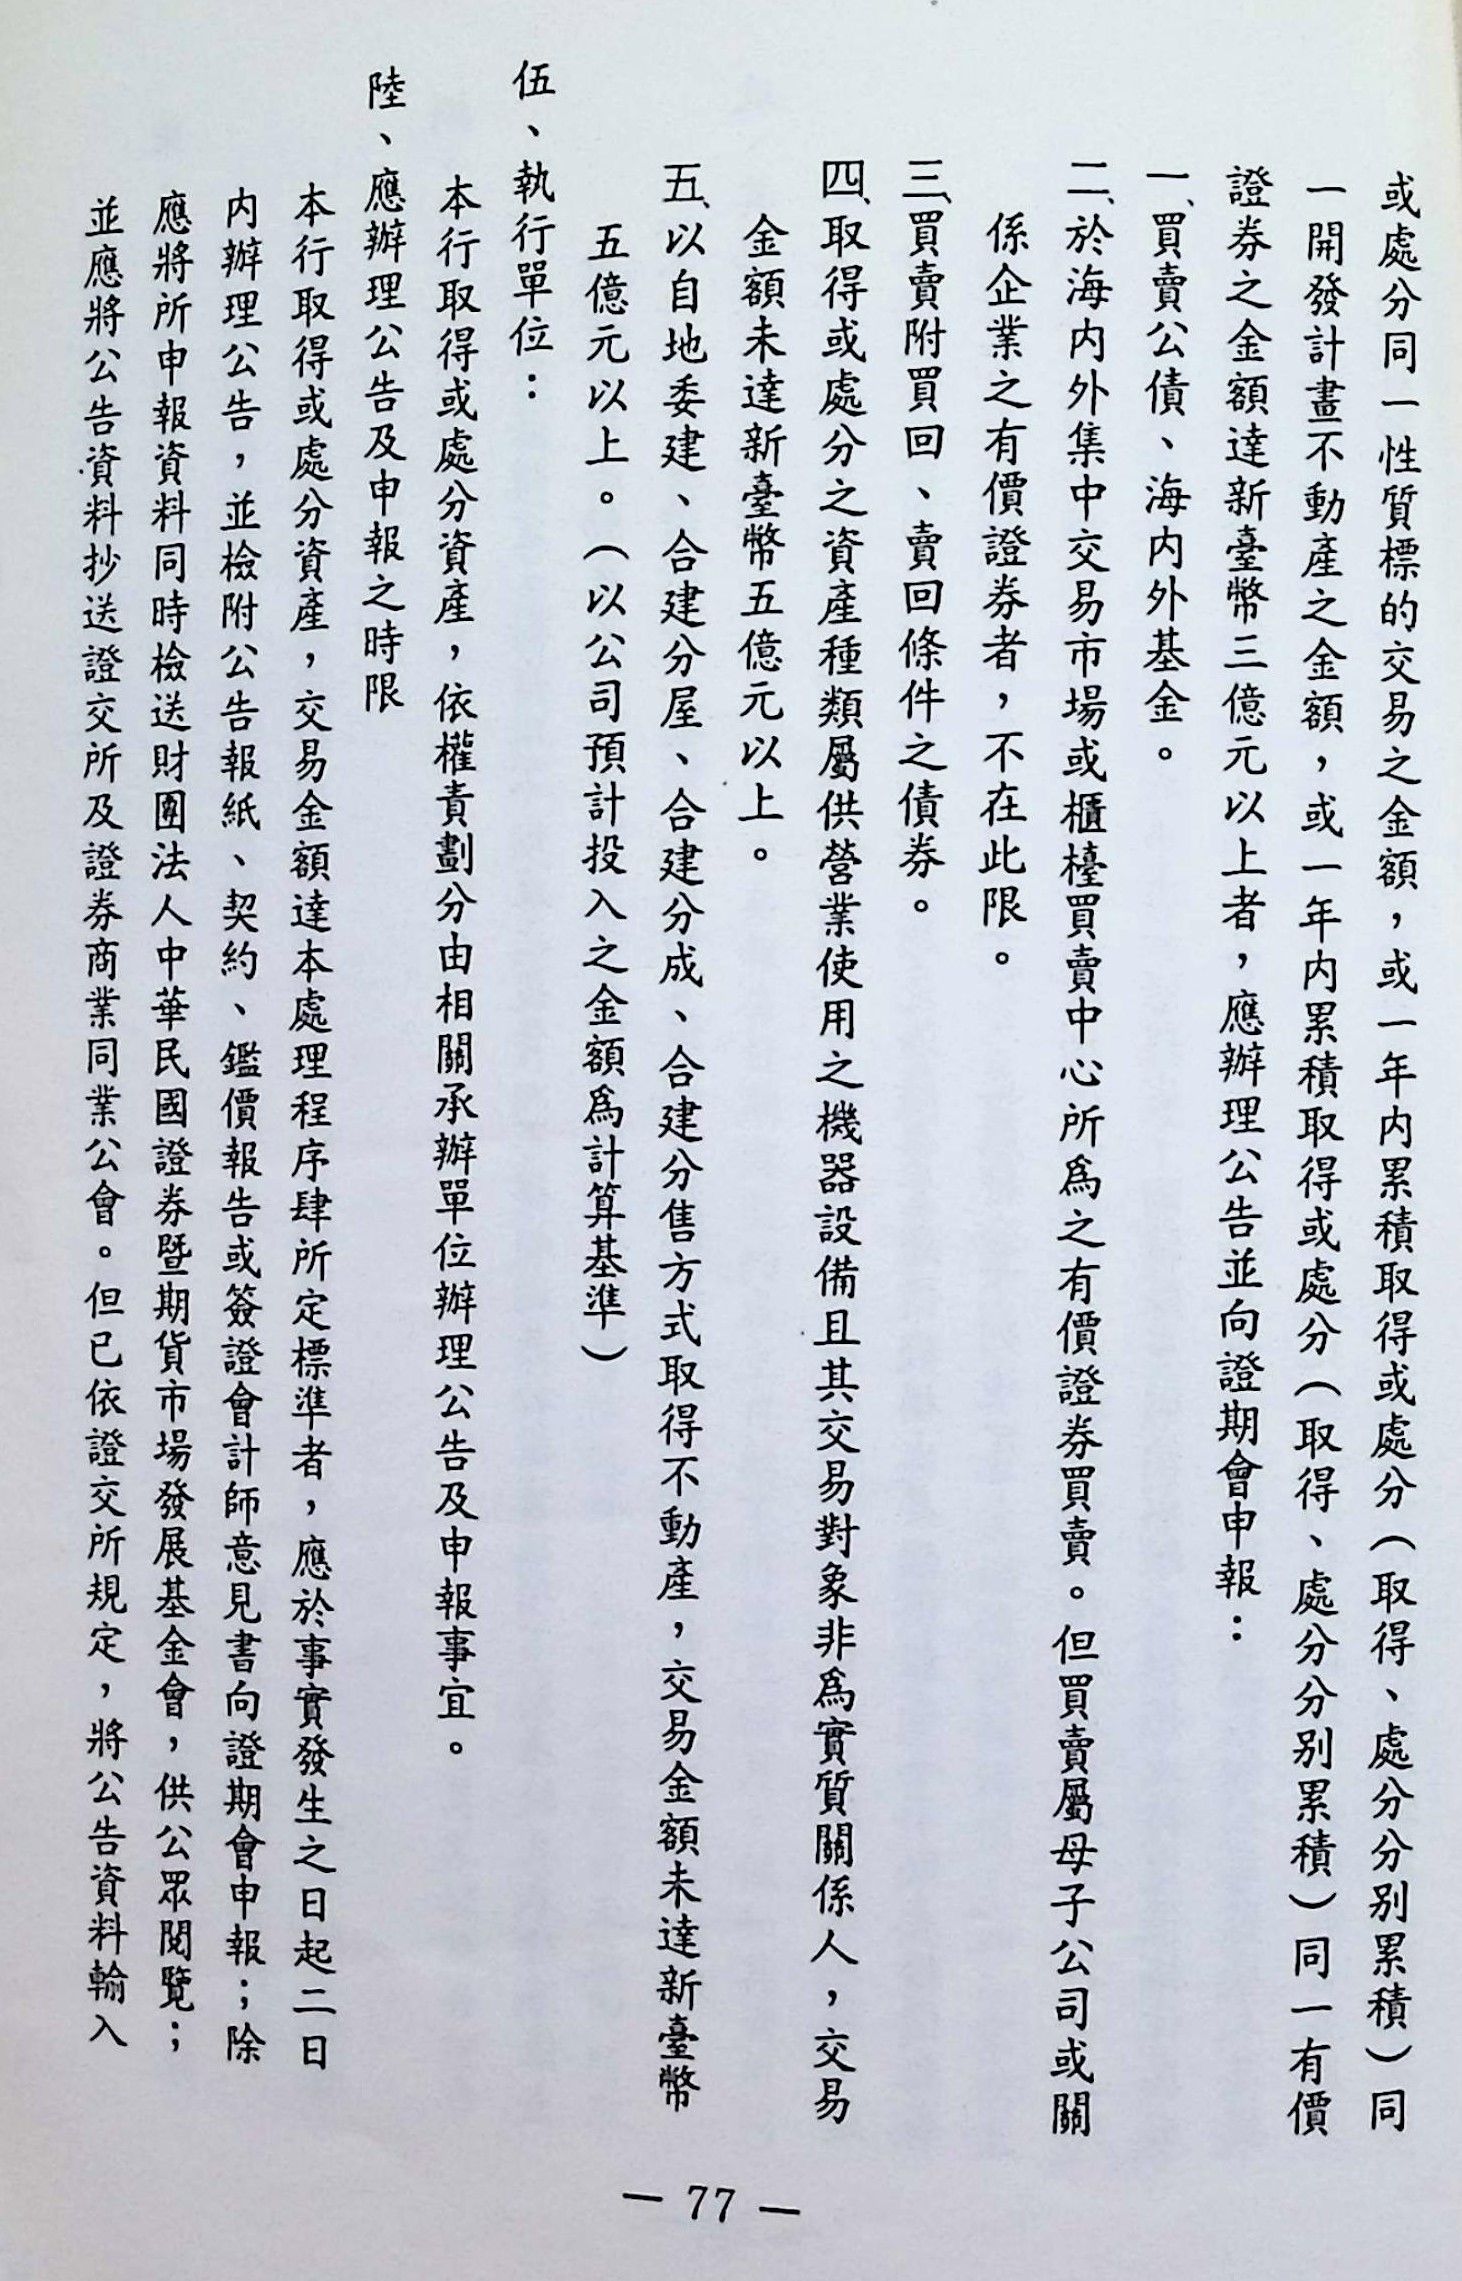 或處分同一性質標的交易之金額，或一年内累積取得或處分（取得、處分分別累積）同
一開發計畫不動產之金額，或一年内累積取得或處分（取得、處分分別累積）同一有價
證券之金額達新臺幣三億元以上者，應辦理公告並向證期會申報：
一、買賣公債、海内外基金。
二、於海内外集中交易市場或櫃檯買賣中心所為之有價證券買賣。但買賣屬母子公司或關
係企業之有價證券者，不在此限。
三、買賣附買回、賣回條件之債券。
四、取得或處分之資產種類屬供營業使用之機器設備且其交易對象非為實質關係人，交易
金額未達新臺幣五億元以上。
五、以自地委建、合建分屋、合建分成、合建分售方式取得不動產，交易金額未達新臺幣
五億元以上。（以公司預計投入之金額為計算基準）
伍、執行單位：
本行取得或處分資產，依權責劃分由相關承辦單位辦理公告及申報事宜。
陸、應辦理公告及申報之時限
本行取得或處分資產，交易金額達本處理程序肆所定標準者，應於事實發生之日起二日
内辦理公告，並檢附公告報紙、契約、鑑價報告或簽證會計師意見書向證期會申報；除
應將所申報資料同時檢送財團法人中華民國證券暨期貨市場發展基金會，供公眾閱覽；
並應將公告資料抄送證交所及證券商業同業公會。但已依證交所規定，將公告資料輸入
— 77 —